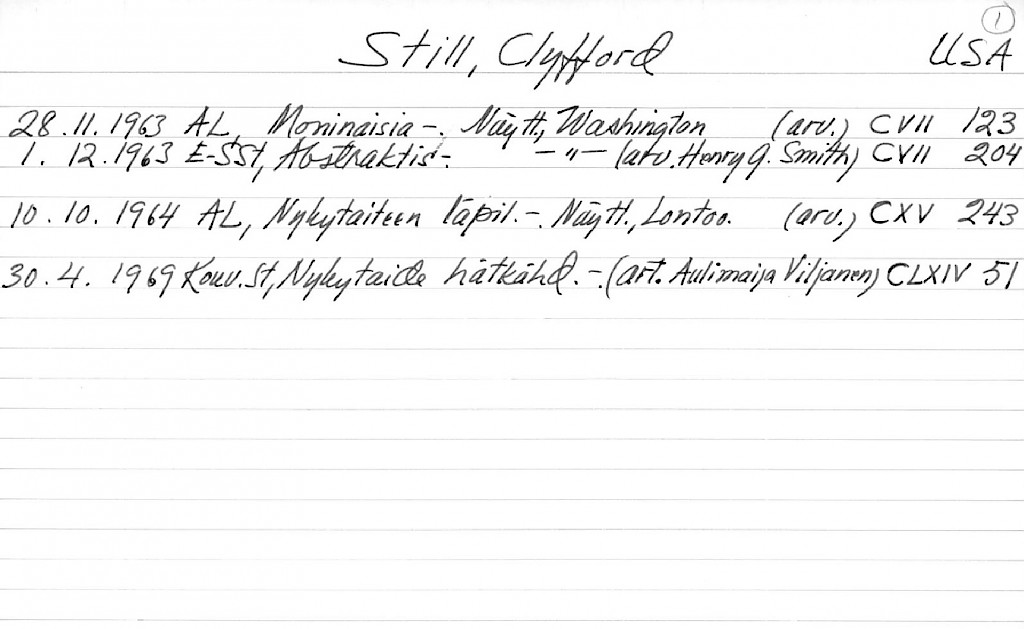 1
Still, Clyfford USA
28.11.1963 AL, Moninaisia -. Näytt., Washington (arv.) CVII 123
1. 12.1963 E-SSt, Abstraktis- -"- (arv. Henry G. Smith) CVII 204
10. 10. 1964 AL, Nykytaiteen läpil. -. Näytt., Lontoo. (arv.) CXV 243
30. 4. 1969 Kouv. St, Nykytaide hätkähd. -. (art. Aulimaija Viljanen) CLXIV 51